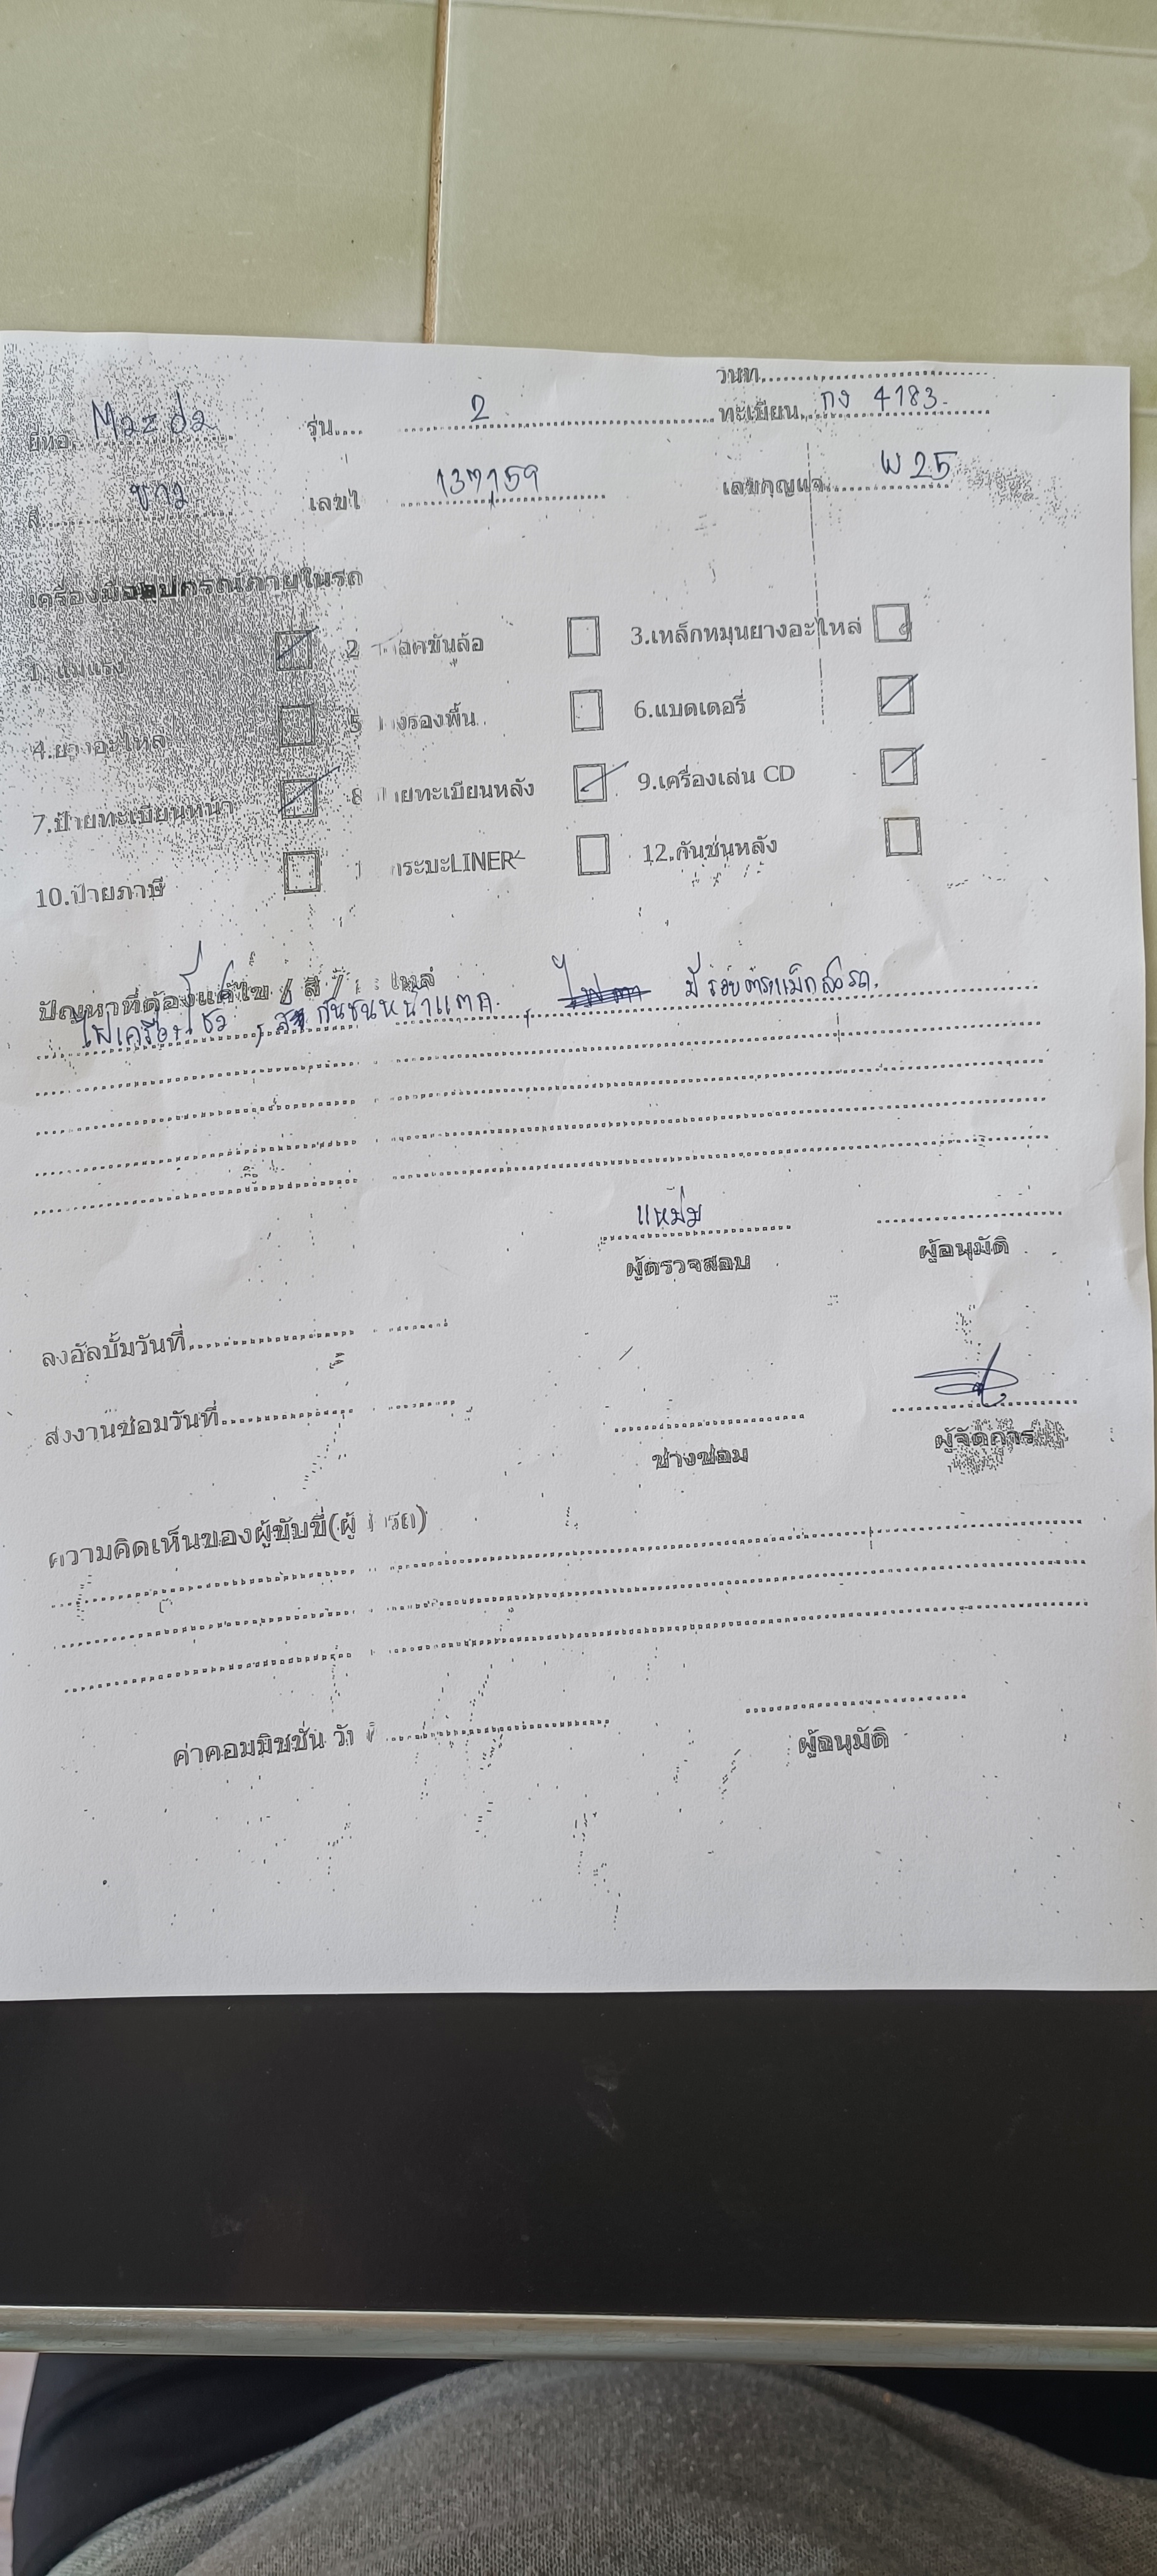 วันที่
ยี่ห้อ Mazda รุ่น 2 ทะเบียน กง 4183.
สี ขาว เลขไ 137,159 เลขกุญแจ W 25
เครื่องมือและอุปกรณ์ภายในรถ
1. แม่แรง 2 อคขันล้อ 3.เหล็กหมุนยางอะไหล่
4.ยางอะไหล่ 5 งรองพื้น 6.แบตเตอรี่
7.ป้ายทะเบียนหน้า 8 ายทะเบียนหลัง 9.เครื่องเล่น CD
10.ป้ายภาษี 1 กระบะLINER 12.กันชนหลัง
ปัญหาที่ต้องแก้ไข / สี /
ไฟเครื่องโชว์ , กันชนหน้าแตก. , มีรอบตัว
แหม่ม
ผู้ตรวจสอบ ผู้อนุมัติ
ลงอัลบั้มวันที่
ส่งงานซ่อมวันที่
ช่างซ่อม ผู้จัดการ
ความคิดเห็นของผู้ขับขี่(ผู้ รถ)
ค่าคอมมิชชั่น วัง
ผู้อนุมัติ